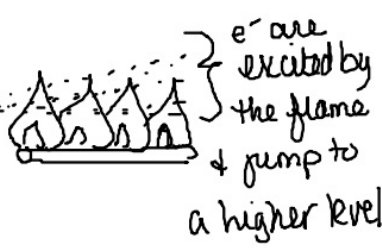 e⁻ are
excited by
the flame
& jump to
a higher level